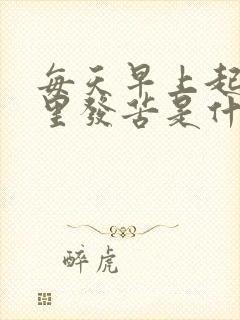 每天早上起
里發苦是什
醉虎